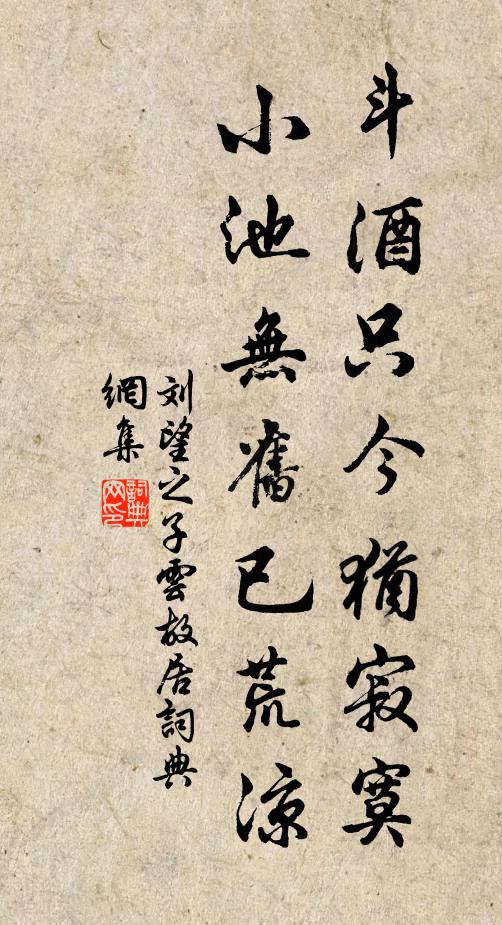 斗酒只今猶寂寞
小池無舊已荒涼
刘望之子雲故居詞典
網集
詞典
网印